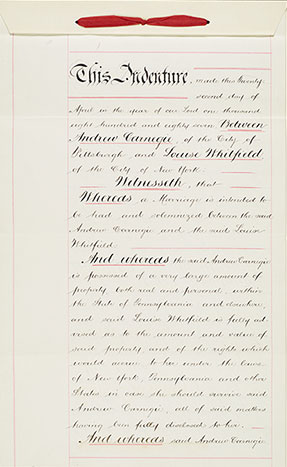 This Indenture, made this twenty-
second day of
April in the year of our Lord one thousand
eight hundred and eighty seven Between
Andrew Carnegie, of the City of
Pittsburgh and Louise Whitfield
of the City of New York.
Witnesseth, that
Whereas a Marriage is intended to
be had and solemnized between the said
Andrew Carnegie and the said Louise
Whitfield.
And whereas the said Andrew Carnegie
is possessed of a very large amount of
property, both real and personal, within
the State of Pennsylvania and elsewhere,
and said Louise Whitfield is fully ad-
vised as to the amount and value of
said property and of the rights which
would accrue to her under the laws
of New York, Pennsylvania and other
States in case she should survive said
Andrew Carnegie, all of said matters
having been fully disclosed to her.
And whereas said Andrew Carnegie